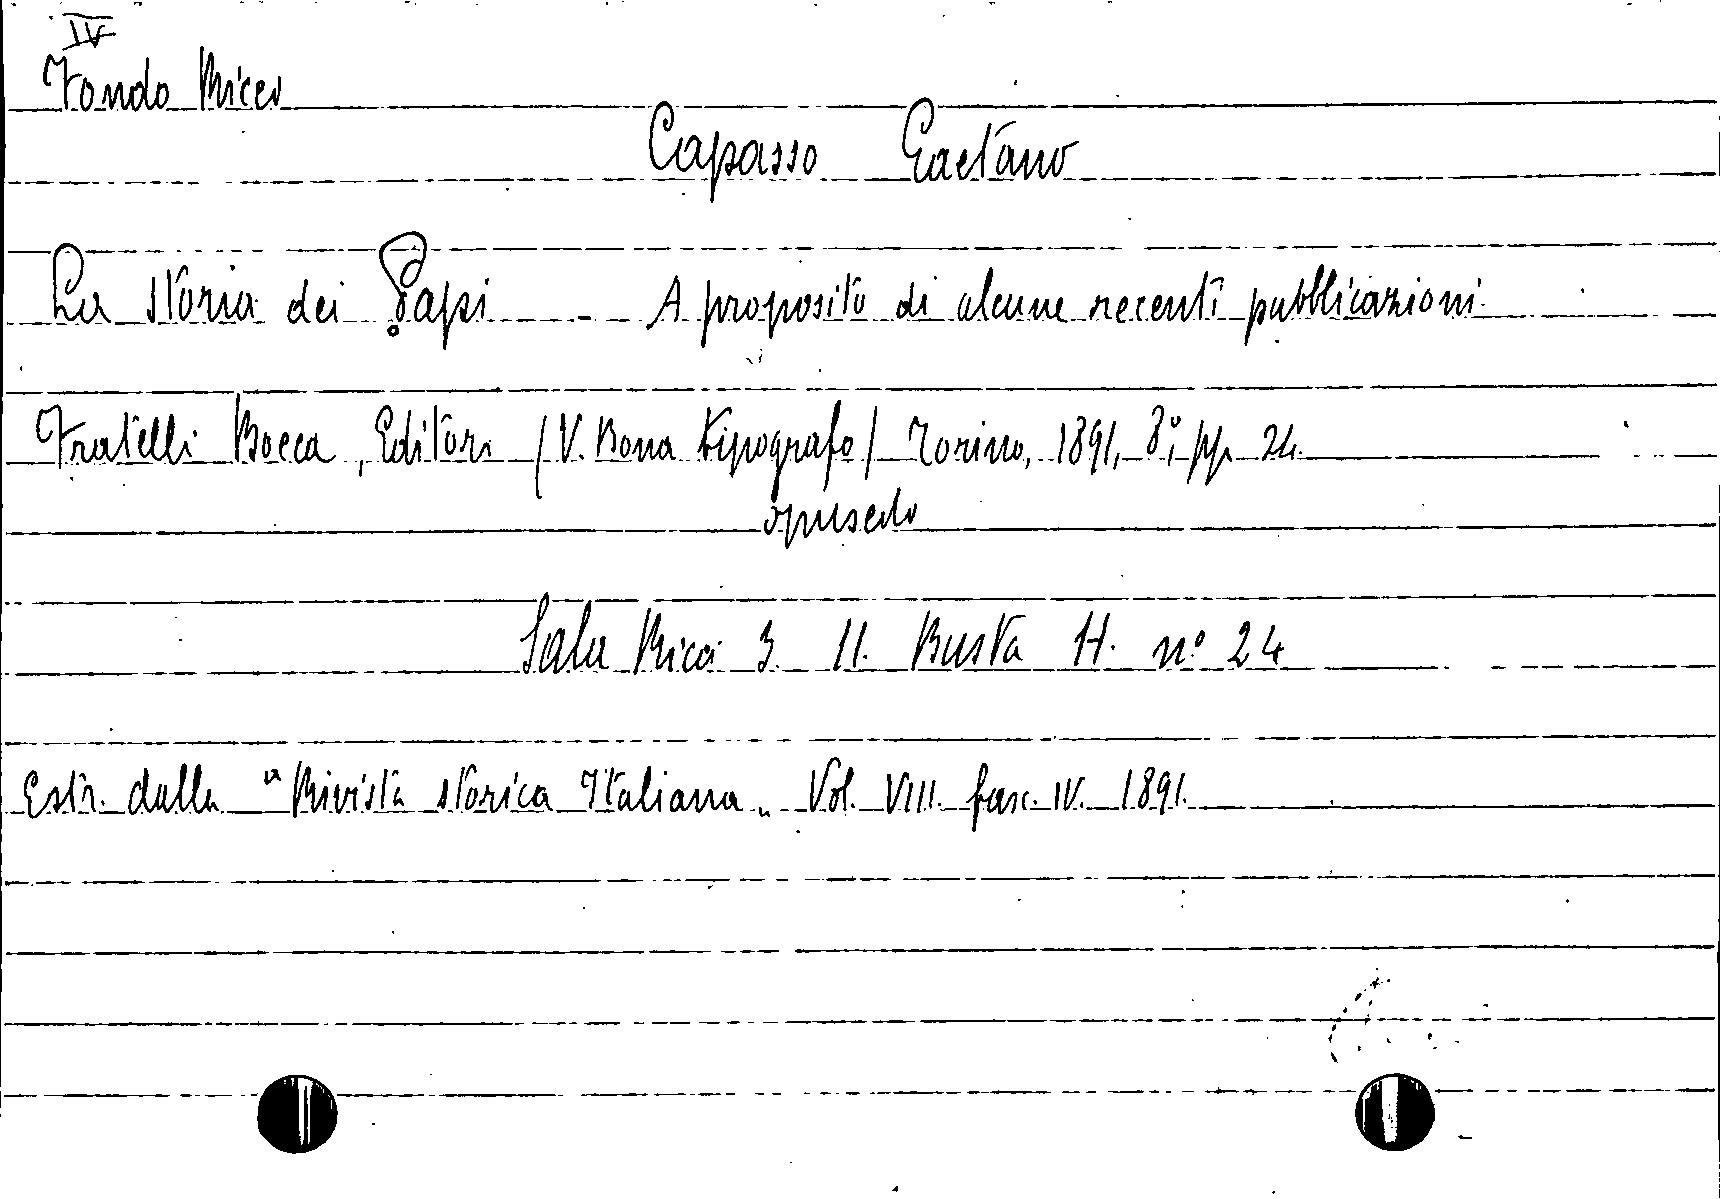 IV
Fondo Ricci
Capasso Gaetano
La storia dei Papi - A proposito di alcune recenti pubblicazioni.
Fratelli Bocca, Editori (V. Bona tipografo) Torino, 1891, 8°, pp. 24.
opuscolo
Sala Ricci 3. II. Busta H. n° 24
Estr. dalla "Rivista storica Italiana„ Vol. VIII. fasc. IV. 1891.